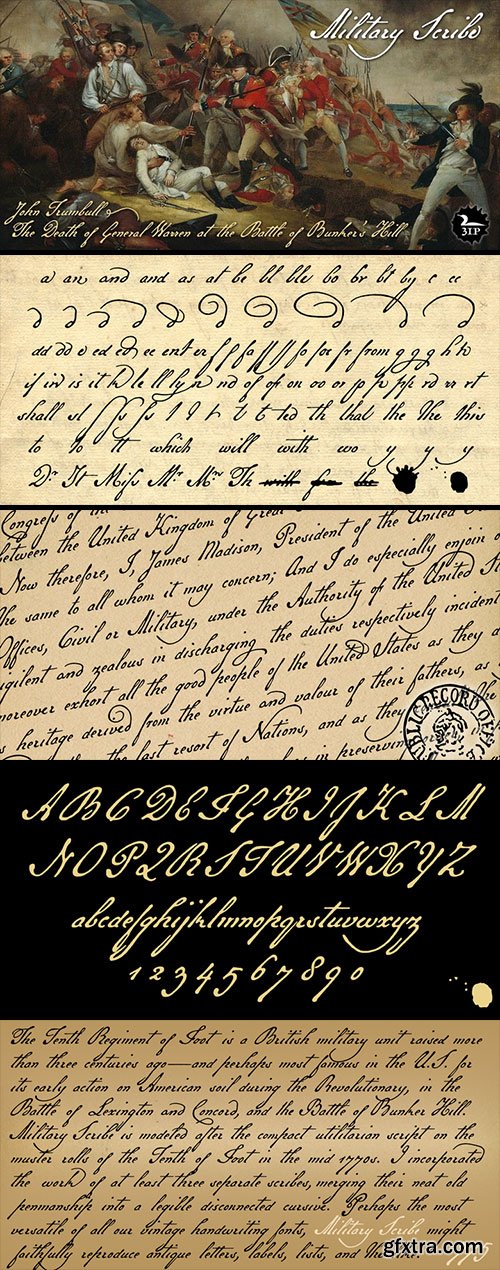 Military Scribe
John Trumbull
The Death of General Warren at the Battle of Bunker's Hill
3IP
a an and and as at be bl ble bo br bt by c cc
dd dd e ed ed ee ent er f f fa ff f fo for fr from g g g h h
if in is it k le ll ly n nd of of on oo or p p pp rd rr rt
shall sl t t t ted th that the the this
to to tt which will with wo y y y
Dr. It Miſs Mr. Mrs. Th will for the
Congress of the
between the United Kingdom of Great
Now therefore, I, James Madison, President of the United
the same to all whom it may concern; And I do especially enjoin
Offices, Civil or Military, under the Authority of the United St
vigilent and zealous in discharging the duties respectively incident
moreover exhort all the good people of the United States as they d
s heritage derived from the virtue and valour of their fathers, as
the last resort of Nations, and as they
in preserving
PUBLIC RECORD OFFICE
A B C D E F G H I J K L M
N O P Q R S T U V W X Y Z
abcdefghijklmnopqrstuvwxyz
1 2 3 4 5 6 7 8 9 0
The Tenth Regiment of Foot is a British military unit raised more
than three centuries ago—and perhaps most famous in the U.S. for
its early action on American soil during the Revolutionary, in the
Battle of Lexington and Concord, and the Battle of Bunker Hill.
Military Scribe is modeled after the compact utilitarian script on the
muster rolls of the Tenth of Foot in the mid 1770s. I incorporated
the work of at least three separate scribes, merging their neat old
penmanship into a legible disconnected cursive. Perhaps the most
versatile of all our vintage handwriting fonts, Military Scribe might
faithfully reproduce antique letters, labels, lists, and
1775
gfxtra.com